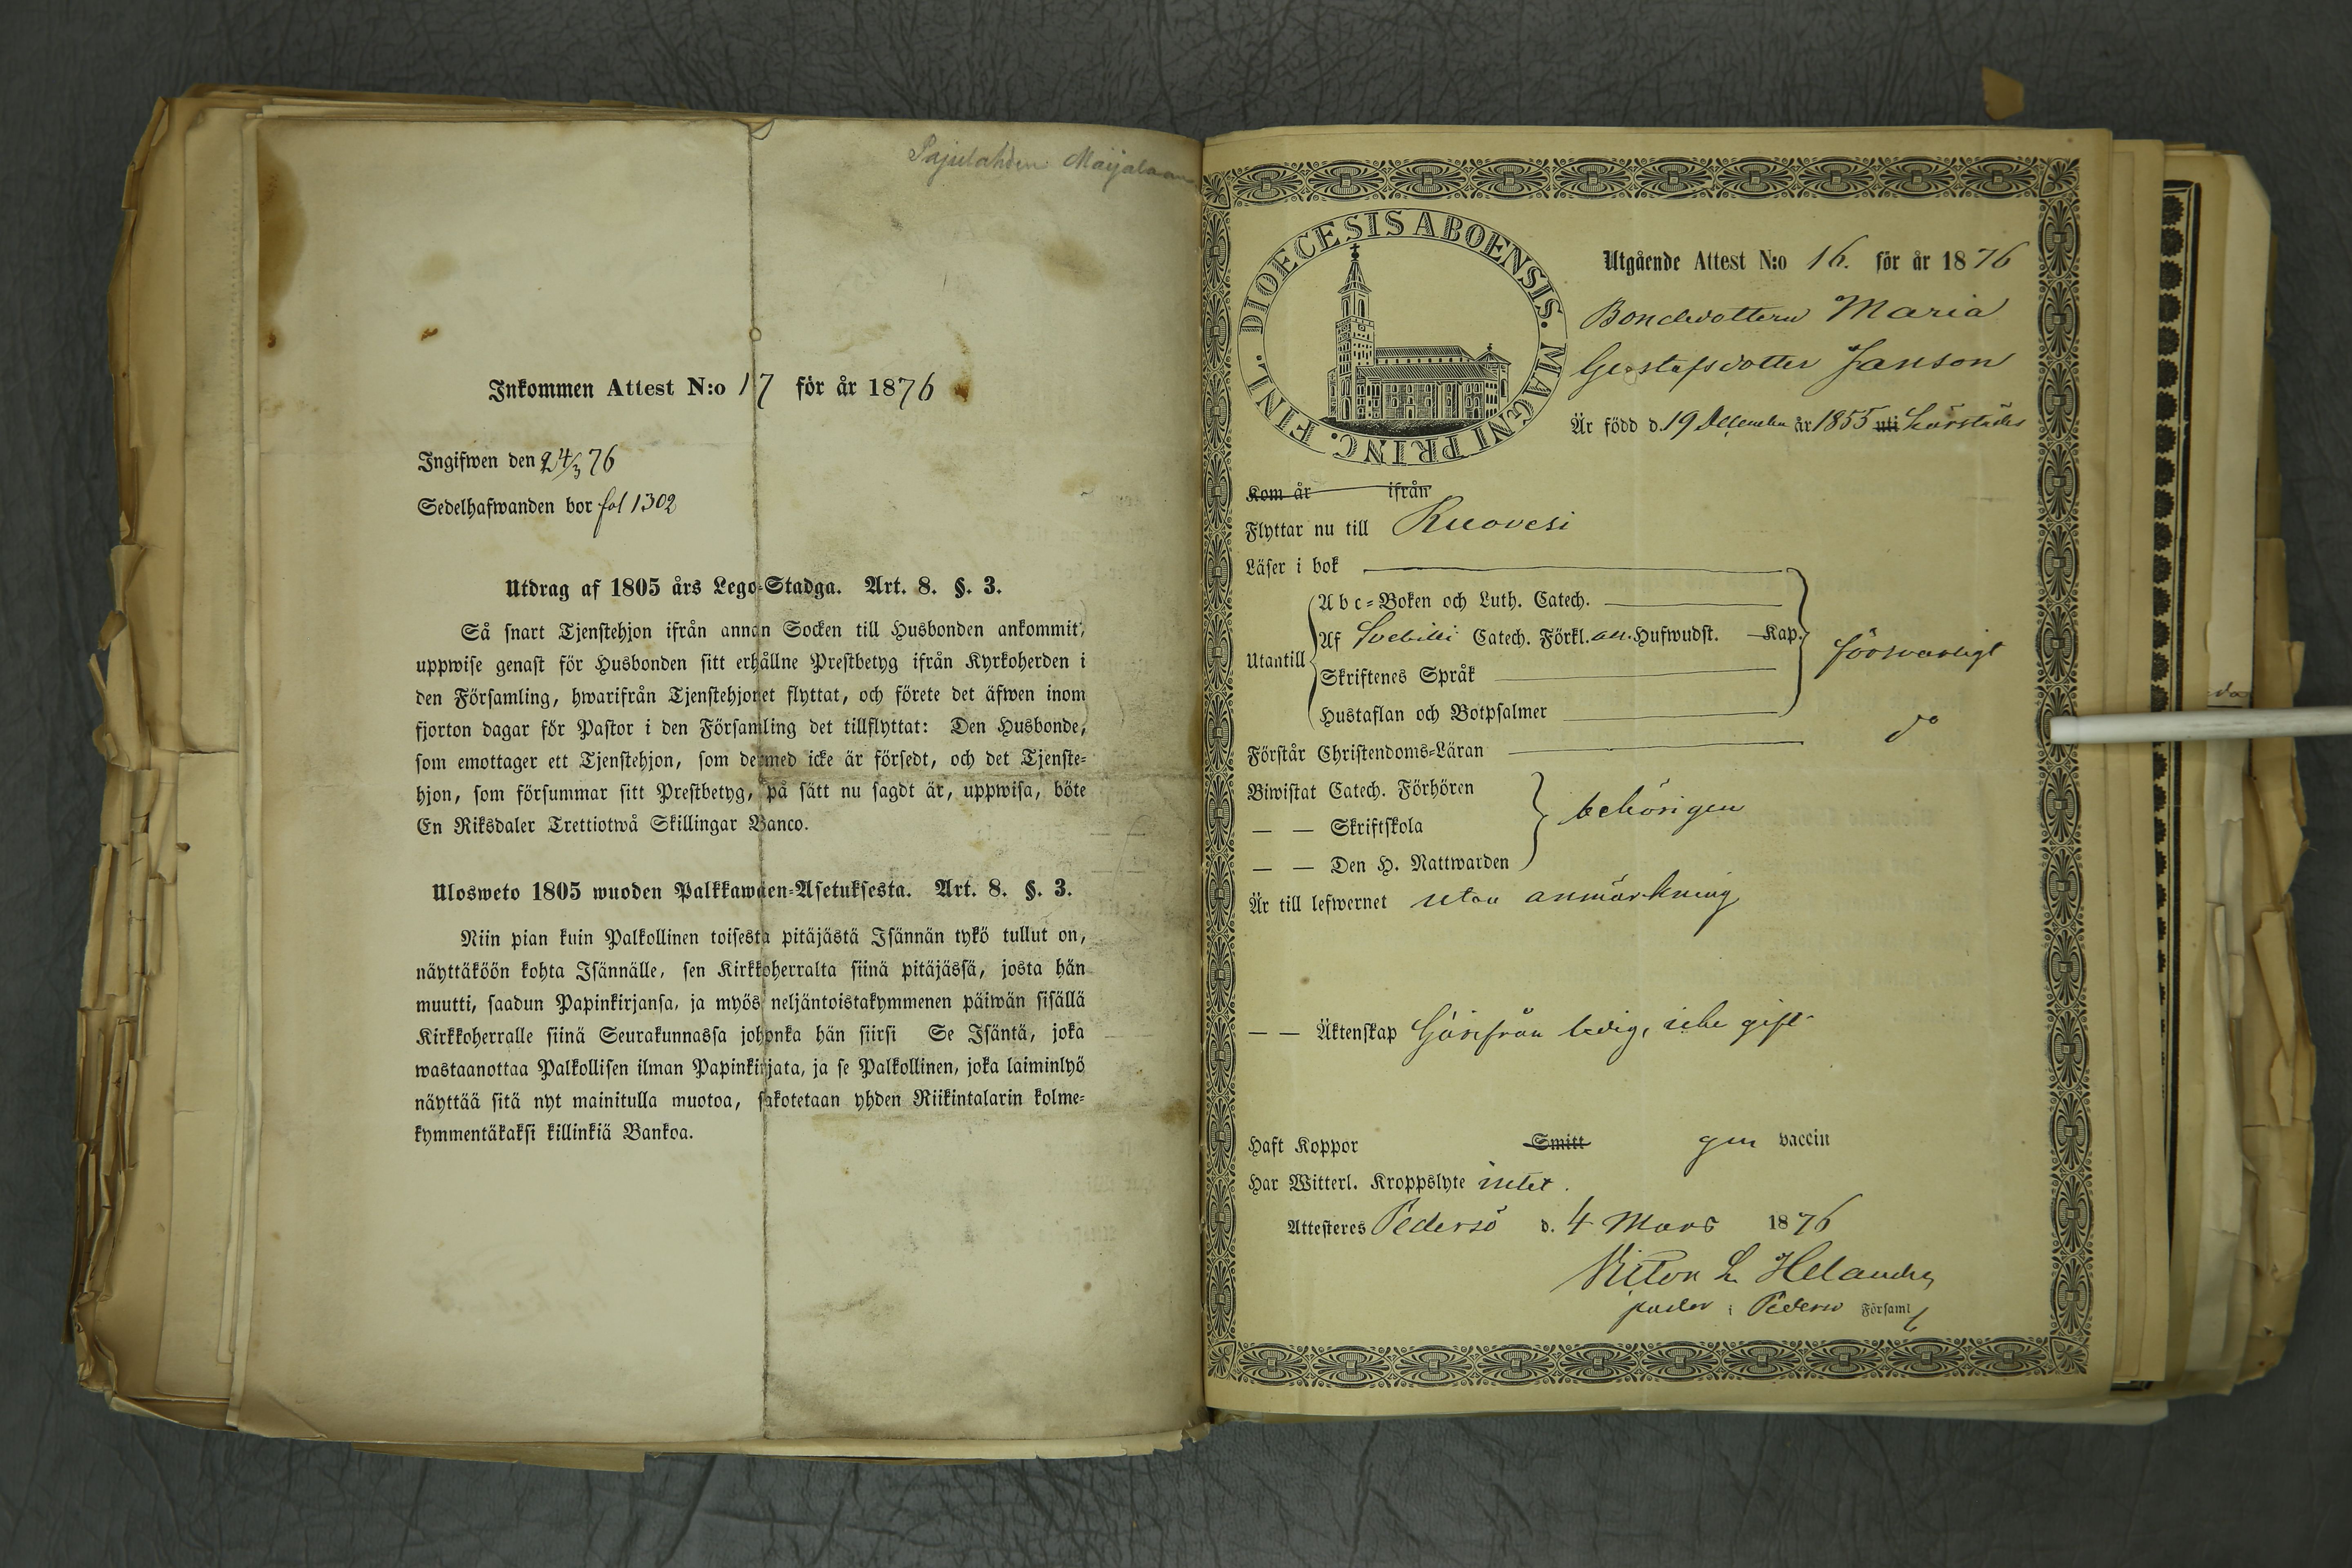 Pajulahden Maijalaan
Inkommen Attest N:o 17 för år 1876
Ingifwen den 24/3 76
Sedelhafwanden bor fol 1302
Utdrag af 1805 års Lego-Stadga. Art. 8. §. 3.
Så snart Tjenstehjon ifrån annan Socken till Husbonden ankommit,
uppwise genast för Husbonden sitt erhållne Prestbetyg ifrån Kyrkoherden i
den Församling, hwarifrån Tjenstehjonet flyttat, och förete det äfwen inom
fjorton dagar för Pastor i den Församling det tillflyttat: Den Husbonde,
som emottager ett Tjenstehjon, som dermed icke är försedt, och det Tjenste-
hjon, som försummar sitt Prestbetyg, på sätt nu sagdt är, uppwisa, böte
En Riksdaler Trettiotwå Skillingar Banco.
Ulosweto 1805 wuoden Palkkawäen-Asetuksesta. Art. 8. §. 3.
Niin pian kuin Palkollinen toisesta pitäjästä Isännän tykö tullut on,
näyttäköön kohta Isännälle, sen Kirkkoherralta siinä pitäjässä, josta hän
muutti, saadun Papinkirjansa, ja myös neljäntoistakymmenen päiwän sisällä
Kirkkoherralle siinä Seurakunnassa johonka hän siirsi Se Isäntä, joka
wastaanottaa Palkollisen ilman Papinkirjata, ja se Palkollinen, joka laiminlyö
näyttää sitä nyt mainitulla muotoa, sakotetaan yhden Riikintalarin kolme-
kymmentäkaksi killinkiä Bankoa.
DIOECESIS ABOENSIS. MAGNI PRINC. FINL.
Utgående Attest N:o 16. för år 1876
Bondedottern Maria
Gustafsdotter Janson
Är född d. 19 December år 1855 uti
Kom år ifrån
Flyttar nu till Ruovesi
Läser i bok
Abc-Boken och Luth. Catech.
Utantill Af Svebilii Catech. Förkl. all. Hufwudst. Kap. försvarligt
Skriftenes Språk
Hustaflan och Botpsalmer
Förstår Christendoms-Läran do
Biwistat Catech. Förhören
— — Skriftskola behörigen
— — Den H. Nattwarden
Är till lefwernet utan anmärkning
— — Äktenskap Härifrån ledig, icke gift
Haft Koppor Smitt gm vaccin
Har Witterl. Kroppslyte intet.
Attesteres Pedersö d. 4 Mars 1876
Viktor L Helander
pastor i Pedersö Församl